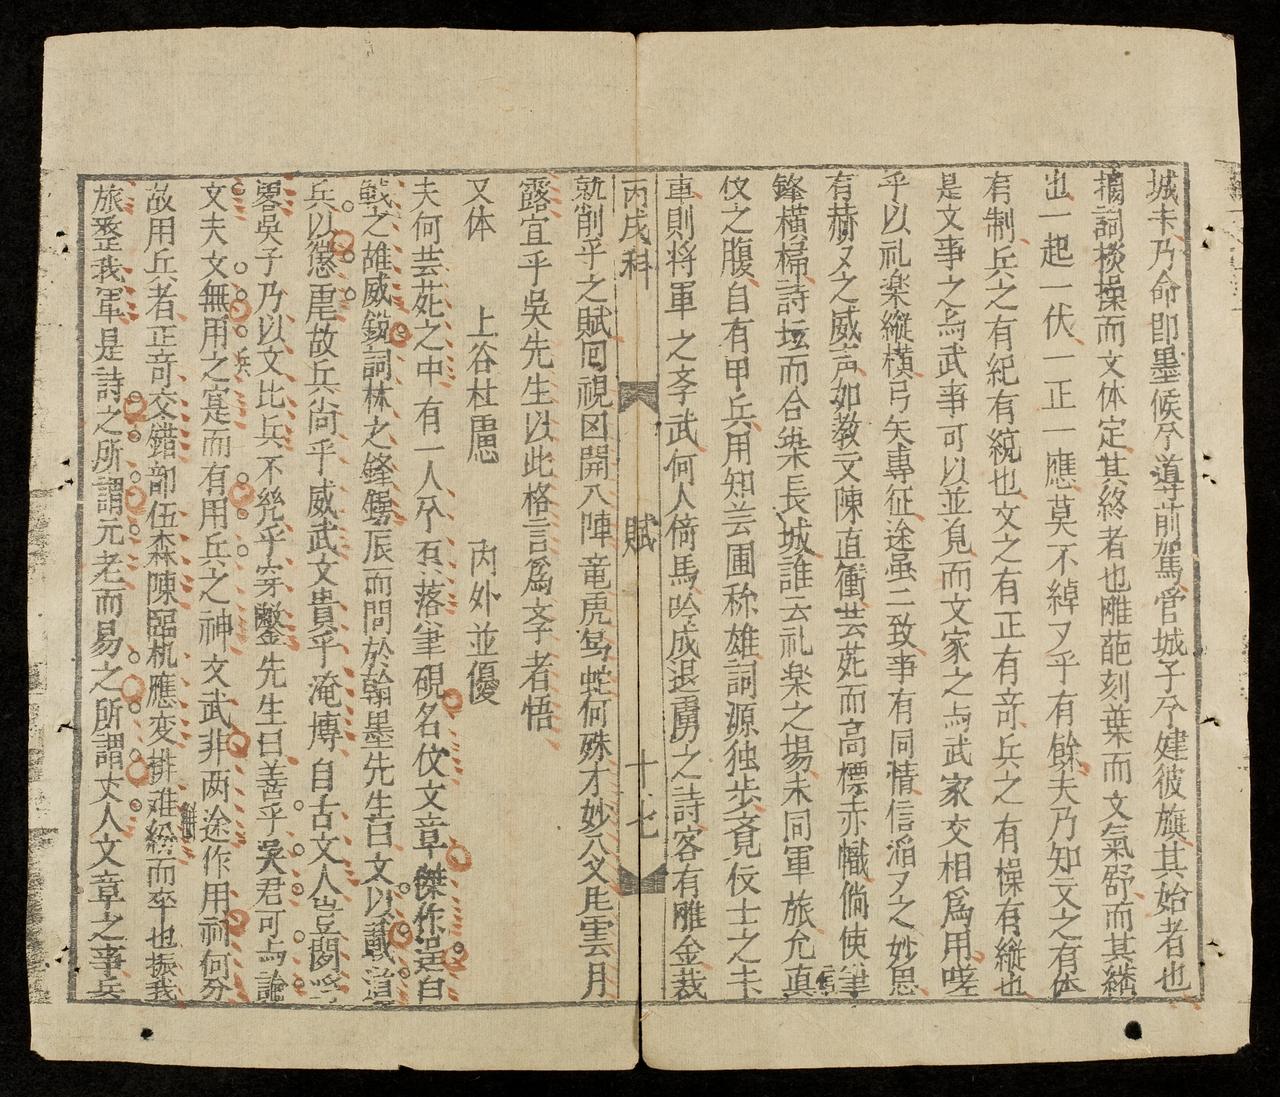 城主乃命即墨候兮導前駕管城子兮建彼旗其始者也
搊詞掞操而文体定其終者也雕葩刻葉而文氣舒而其縱
也一起一伏一正一應莫不綽又乎有餘夫乃知文之有体
有制兵之有紀有統也文之有正有竒兵之有操有縱也
是文事之与武事可以並見而文家之与武家交相爲用嗟
乎以礼楽縱横弓矢專征途虽二致事有同情信滔又之妙思
有赫又之威声如教文陳直衝芸苑而高標赤幟倘使筆
鋒横掃詩坛而合築長城誰云礼楽之場未同軍旅允真 信
伩之腹自有甲兵用知芸圃称雄詞源独步竟見伩士之手
車則将軍之李武何人倚馬吟成退虜之詩客有雕金裁
丙戌科 賦 十七
就削乎之賦囘視図開八陣竜虎鳥蛇何殊才妙八义庒雲月
露宜乎吳先生以此格言爲李者悟
又体 上谷杜愿 内外並優
夫何芸苑之中有一人兮石落筆硯名伩文章傑作逞白
戰之雄威鋭詞林之鋒鍔辰而問於翰墨先生曰文以載道
兵以懲軍故兵尚乎威武文貴乎淹博自古文人豈閑將
畧吳子乃以文比兵不幾乎穿鑿先生曰善乎吳君可与論
文夫文無用之寔而有用兵之神文武非两途作用祠何分 兵
故用兵者正竒交錯部伍森陳臨机應変排难觧而卒也振我
旅整我軍是詩之所謂元老而易之所謂丈人文章之事兵